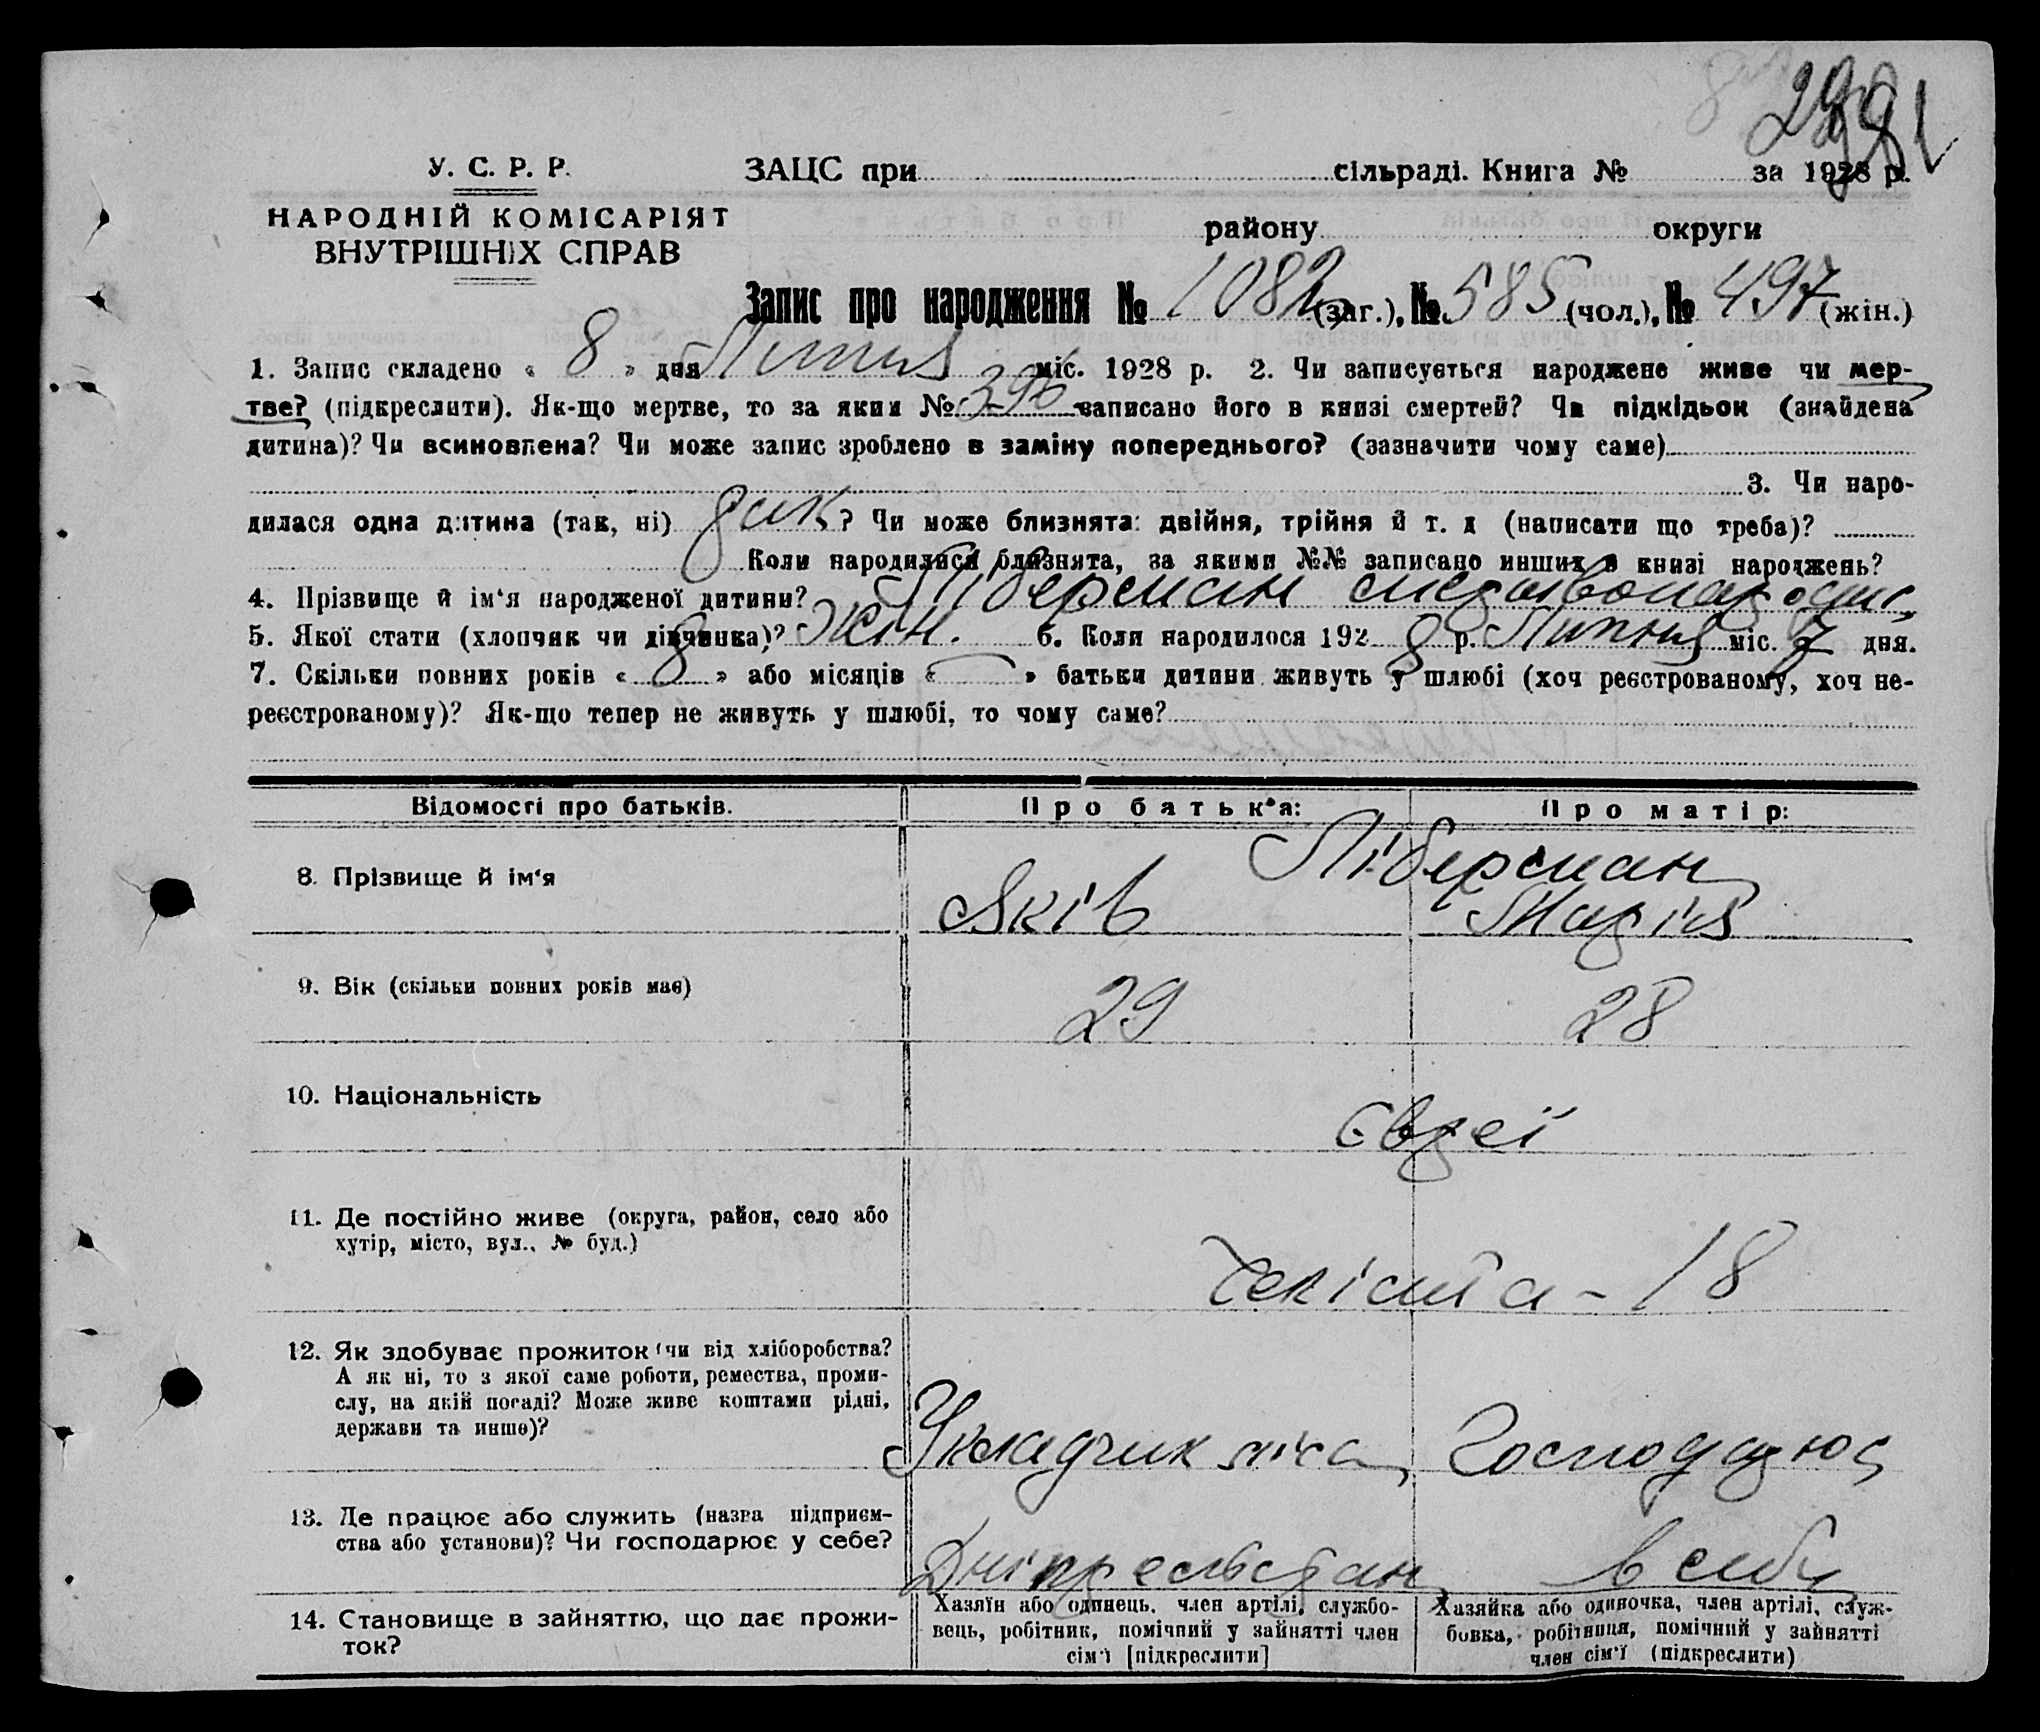 У. С. Р. Р.
НАРОДНІЙ КОМІСАРІЯТ
ВНУТРІШНІХ СПРАВ
ЗАЦС при сільраді. Книга № за 1928 р.
району округи
Запис про народження № 1082 (заг.), № 585 (чол.), № 497 (жін.)
1. Запис складено « 8 » дня Липня міс. 1928 р. 2. Чи записується народжене живе чи мер-
тве? (підкреслити). Як-що мертве, то за яким № 396 записано його в книзі смертей? Чи підкідьок (знайдена
дитина)? Чи всиновлена? Чи може запис зроблено в заміну попереднього? (зазначити чому саме)
3. Чи наро-
дилася одна дитина (так, ні) так? Чи може близнята: двійня, трійня й т. д (написати що треба)?
Коли народилися близнята, за якими №№ записано инших в книзі народжень?
4. Прізвище й ім‘я народженої дитини? Ліберман
5. Якої стати (хлопчик чи дівчинка)? Жін. 6. Коли народилося 192 8 р. Липня міс. 7 дня.
7. Скільки повних років « 8 » або місяців « — » батьки дитини живуть у шлюбі (хоч реєстрованому, хоч не-
реєстрованому)? Як-що тепер не живуть у шлюбі, то чому саме?
Відомості про батьків. Про батьк‘а: Про матір:
Ліберман
8. Прізвище й ім‘я Яків Марія
9. Вік (скільки повних років має) 29 28
10. Національність Євреї
11. Де постійно живе (округа, район, село або
хутір, місто, вул., № буд.)
Чекіста - 18
12. Як здобуває прожиток (чи від хліборобства?
А як ні, то з якої саме роботи, ремества, проми-
слу, на якій посаді? Може живе коштами рідні,
держави та инше)?
Укладчик ліса Господарює
13. Де працює або служить (назва підприєм-
ства або установи)? Чи господарює у себе?
в себе
14. Становище в зайняттю, що дає прожи-
ток?
Хазяїн або одинець, член артілі, службо-
вець, робітник, помічний у зайнятті член
сім‘ї [підкреслити]
Хазяйка або одиночка, член артілі, служ-
бовка, робітниця, помічний у зайнятті
член сім‘ї (підкреслити)